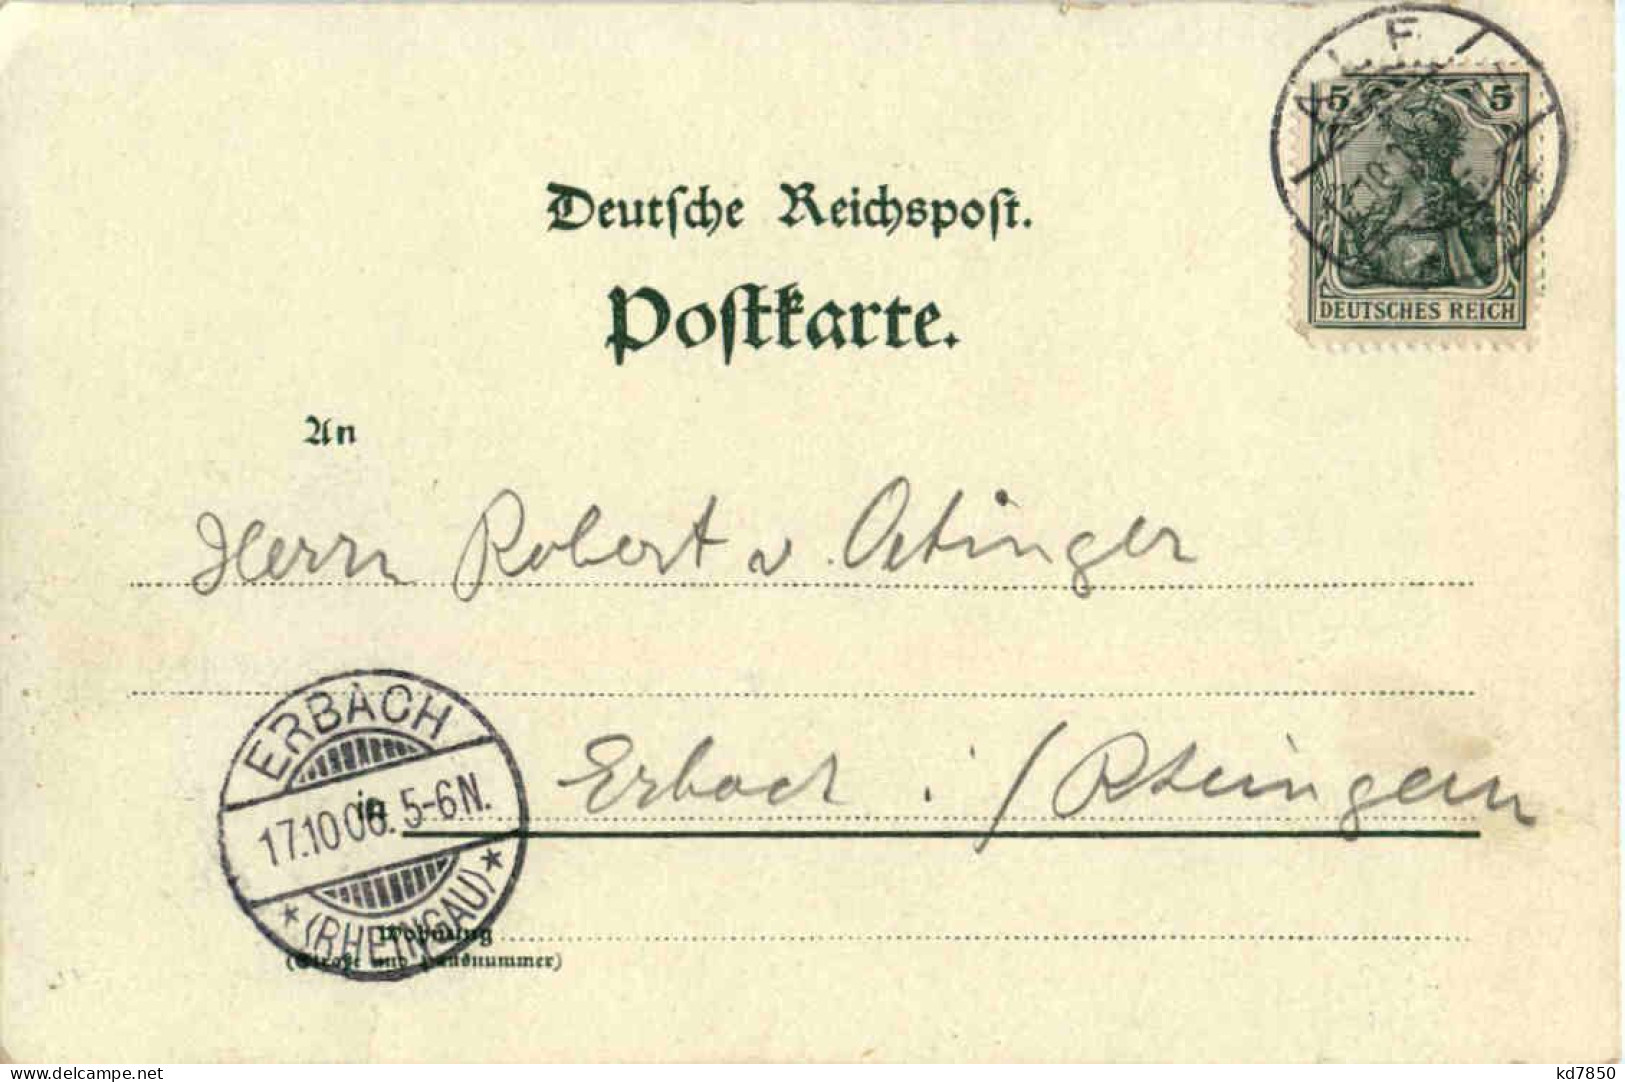 ALF
5 5
DEUTSCHES REICH
Deutſche Reichspoſt.
Poſtkarte.
An
Herrn Robert v. Oetinger
ERBACH
17.10 06. 5-6N.
* (RHEINGAU) *
in Erbach i/Rheingau
Wohnung
(Straße und Hausnummer)
www.delcampe.net
kd7850